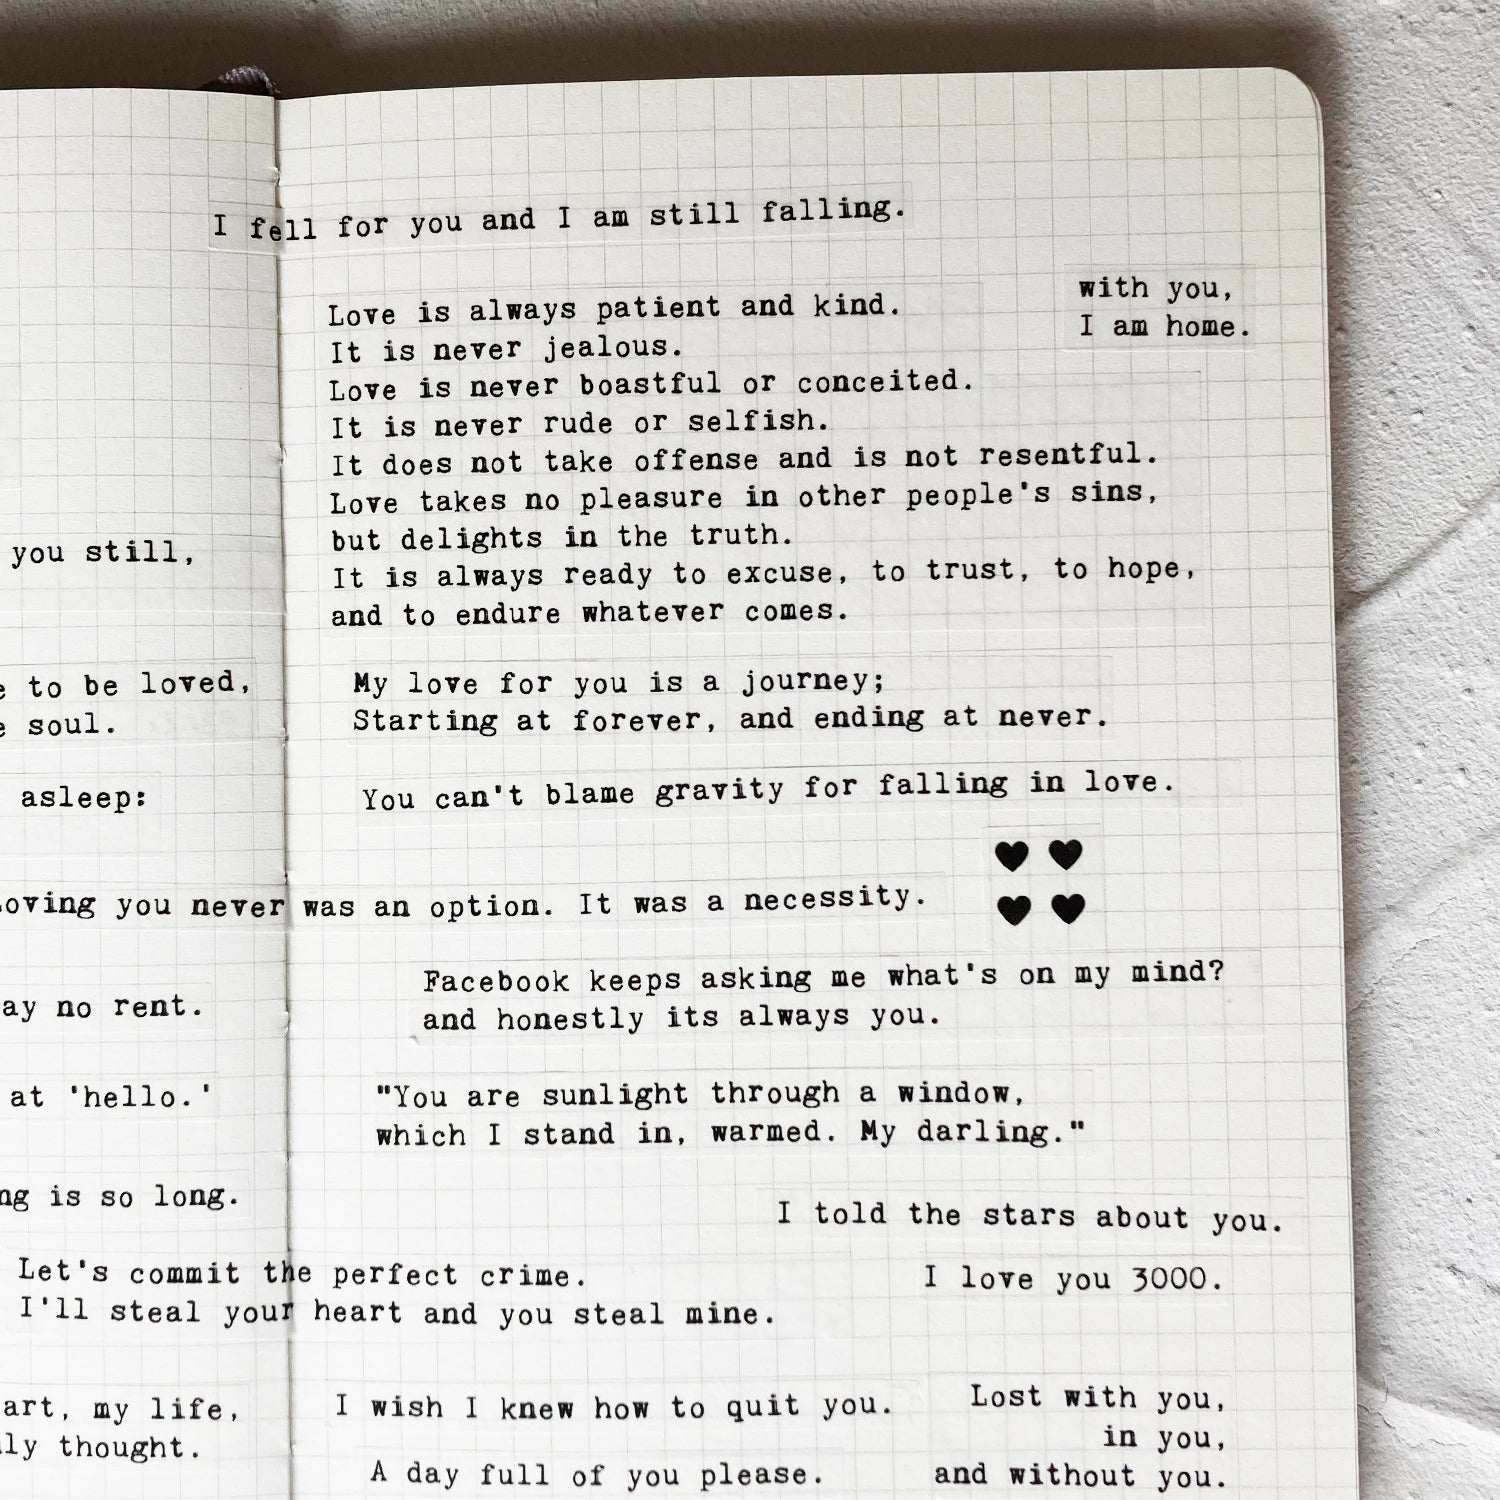 I fell for you and I am still falling.
with you,
I am home.
Love is always patient and kind.
It is never jealous.
Love is never boastful or conceited.
It is never rude or selfish.
It does not take offense and is not resentful.
Love takes no pleasure in other people's sins,
but delights in the truth.
It is always ready to excuse, to trust, to hope,
and to endure whatever comes.
you still,
to be loved,
soul.
asleep:
My love for you is a journey;
Starting at forever, and ending at never.
You can't blame gravity for falling in love.
oving you never was an option. It was a necessity.
ay no rent.
Facebook keeps asking me what's on my mind?
and honestly its always you.
at 'hello.'
"You are sunlight through a window,
which I stand in, warmed. My darling."
ng is so long.
I told the stars about you.
Let's commit the perfect crime.
I'll steal your heart and you steal mine.
I love you 3000.
art, my life,
ly thought.
I wish I knew how to quit you.
A day full of you please.
Lost with you,
in you,
and without you.